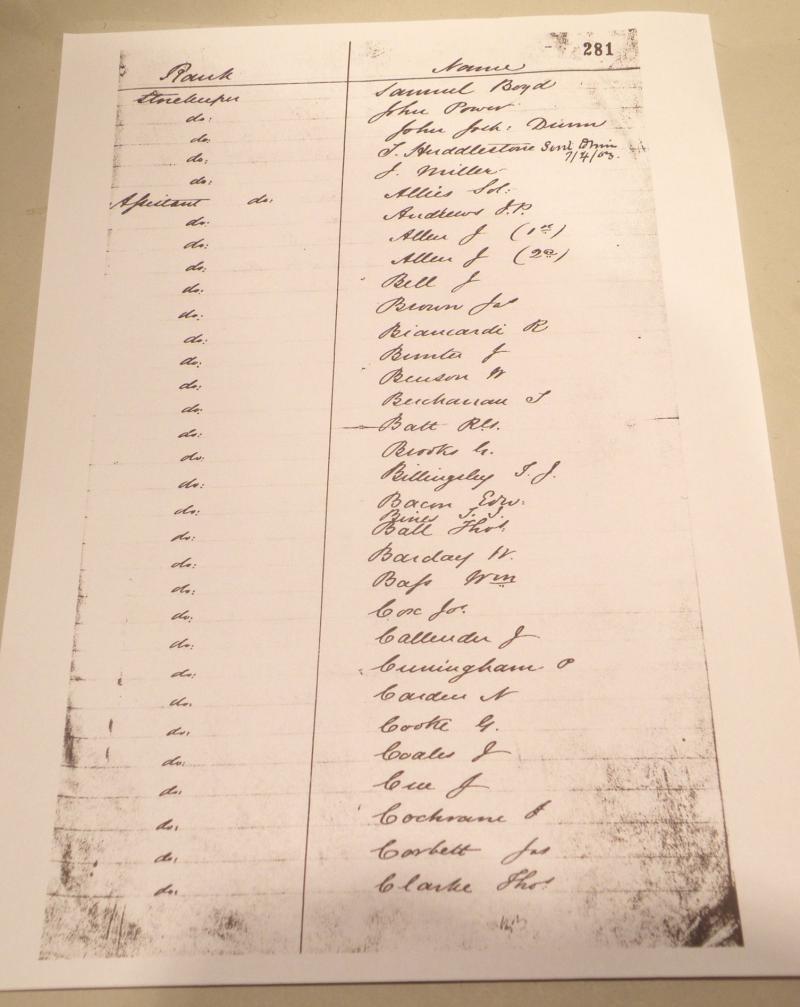 281
Rank Name
Storekeeper Samuel Boyd
do: John Power
do: John Joch: Dunn
do: T. Huddlestone Senl Dmin 7/4/03.
do: J. Miller
Assistant do: Allies Sol:
do: Andrews J.P.
do: Allen J (1st)
do: Allen J (2d)
do: Bell J
do: Brown Jas
do: Biancardi R
do: Bunter J
do: Benson W
do: Buchanan T
do: Batt Rt.
do: Brooks G.
do: Billingsley T. J.
do: Bacon Edw:
Bines T. J.
do: Ball Thos
do: Barclay W.
do: Bass Wm
do: Cox Jos.
do: Callender J
do: Cuningham P
do: Carden N
do: Cooke G.
do: Coales J
do: Cue J
do: Cochrane J
do: Corbett Jas
do: Clarke Thos